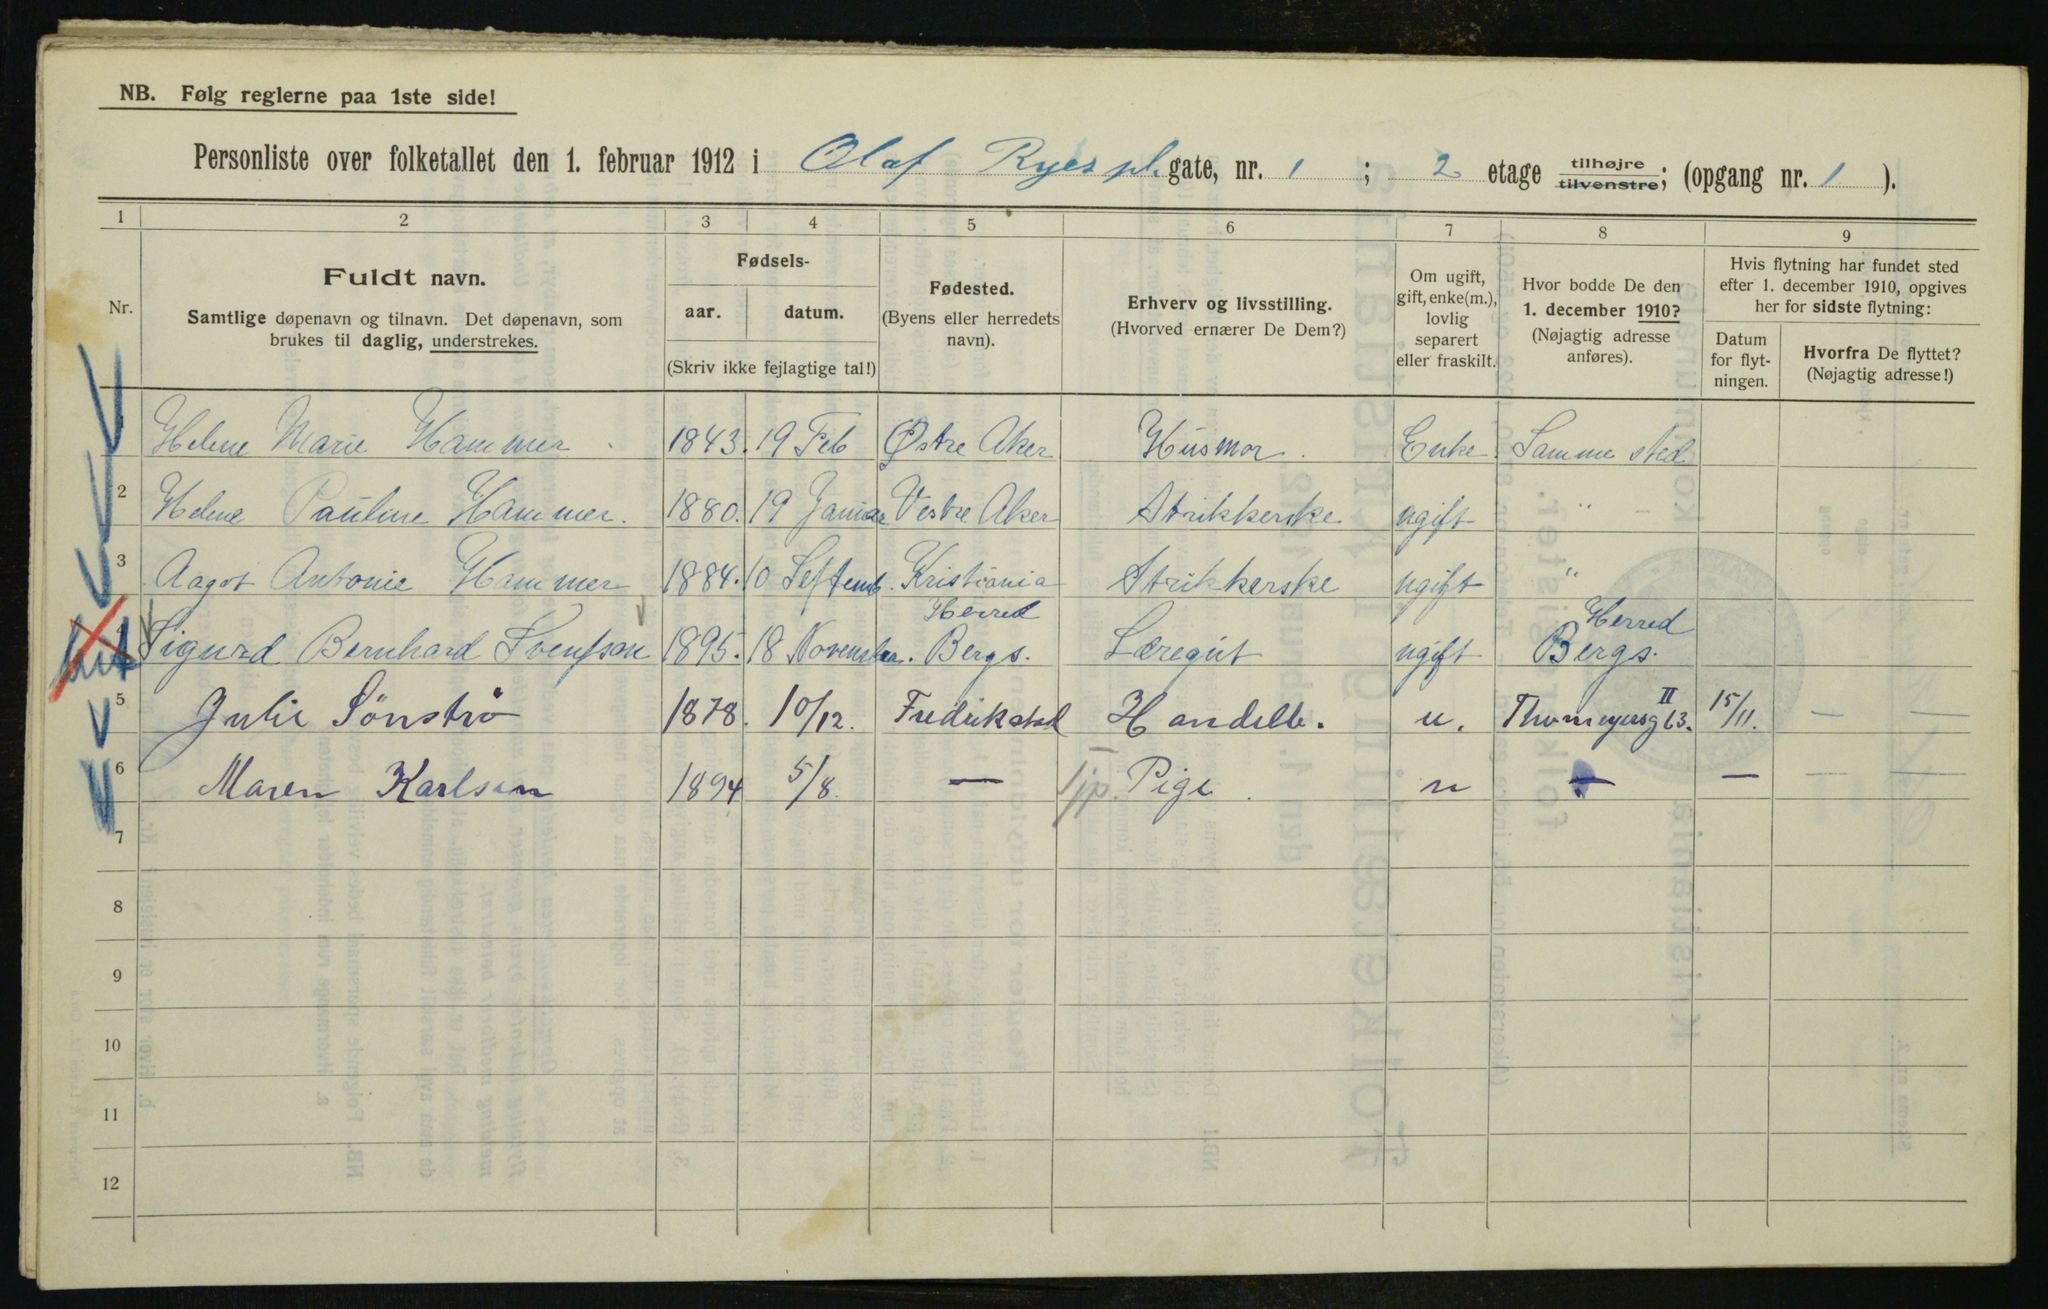 NB. Følg reglerne paa 1ste side!
Personliste over folketallet den 1. februar 1912 i Olaf Ryes pl. gate, nr. 1 ; 2 etage tilhøjre tilvenstre; (opgang nr. 1 ).
1 2 3 4 5 6 7 8 9
Nr.
Fuldt navn.
Samtlige døpenavn og tilnavn. Det døpenavn, som
brukes til daglig, understrekes.
Fødsels-
aar. datum.
(Skriv ikke fejlagtige tal!)
Fødested.
(Byens eller herredets
navn).
Erhverv og livsstilling.
(Hvorved ernærer De Dem?)
Om ugift,
gift, enke(m.),
lovlig
separert
eller fraskilt.
Hvor bodde De den
1. december 1910?
(Nøjagtig adresse
anføres).
Hvis flytning har fundet sted
efter 1. december 1910, opgives
her for sidste flytning:
Datum
for flyt-
ningen.
Hvorfra De flyttet?
(Nøjagtig adresse!)
Helene Marie Hammer 1843. 19 Feb Østre Aker Husmor. Enke Samme sted
2 Helene Pauline Hammer. 1880. 19 Januar Vestre Aker Strikkerske ugift "
3 Aagot Antonie Hammer 1884. 10 Septemb. Kristiania Strikkerske ugift "
4 Sigurd Bernhard Svenssen 1895. 18 November. Herred Bergs. Læregut ugift Herred Bergs.
5 Julie Sönströ 1878. 10/12. Fredrikstad Handelb. u. Thv. meyersg 63. II 15/11. — —
6 Maren Karlsen 1894 5/8. — 1/jp. Pige. u — — — —
7
8
9
10
11
12